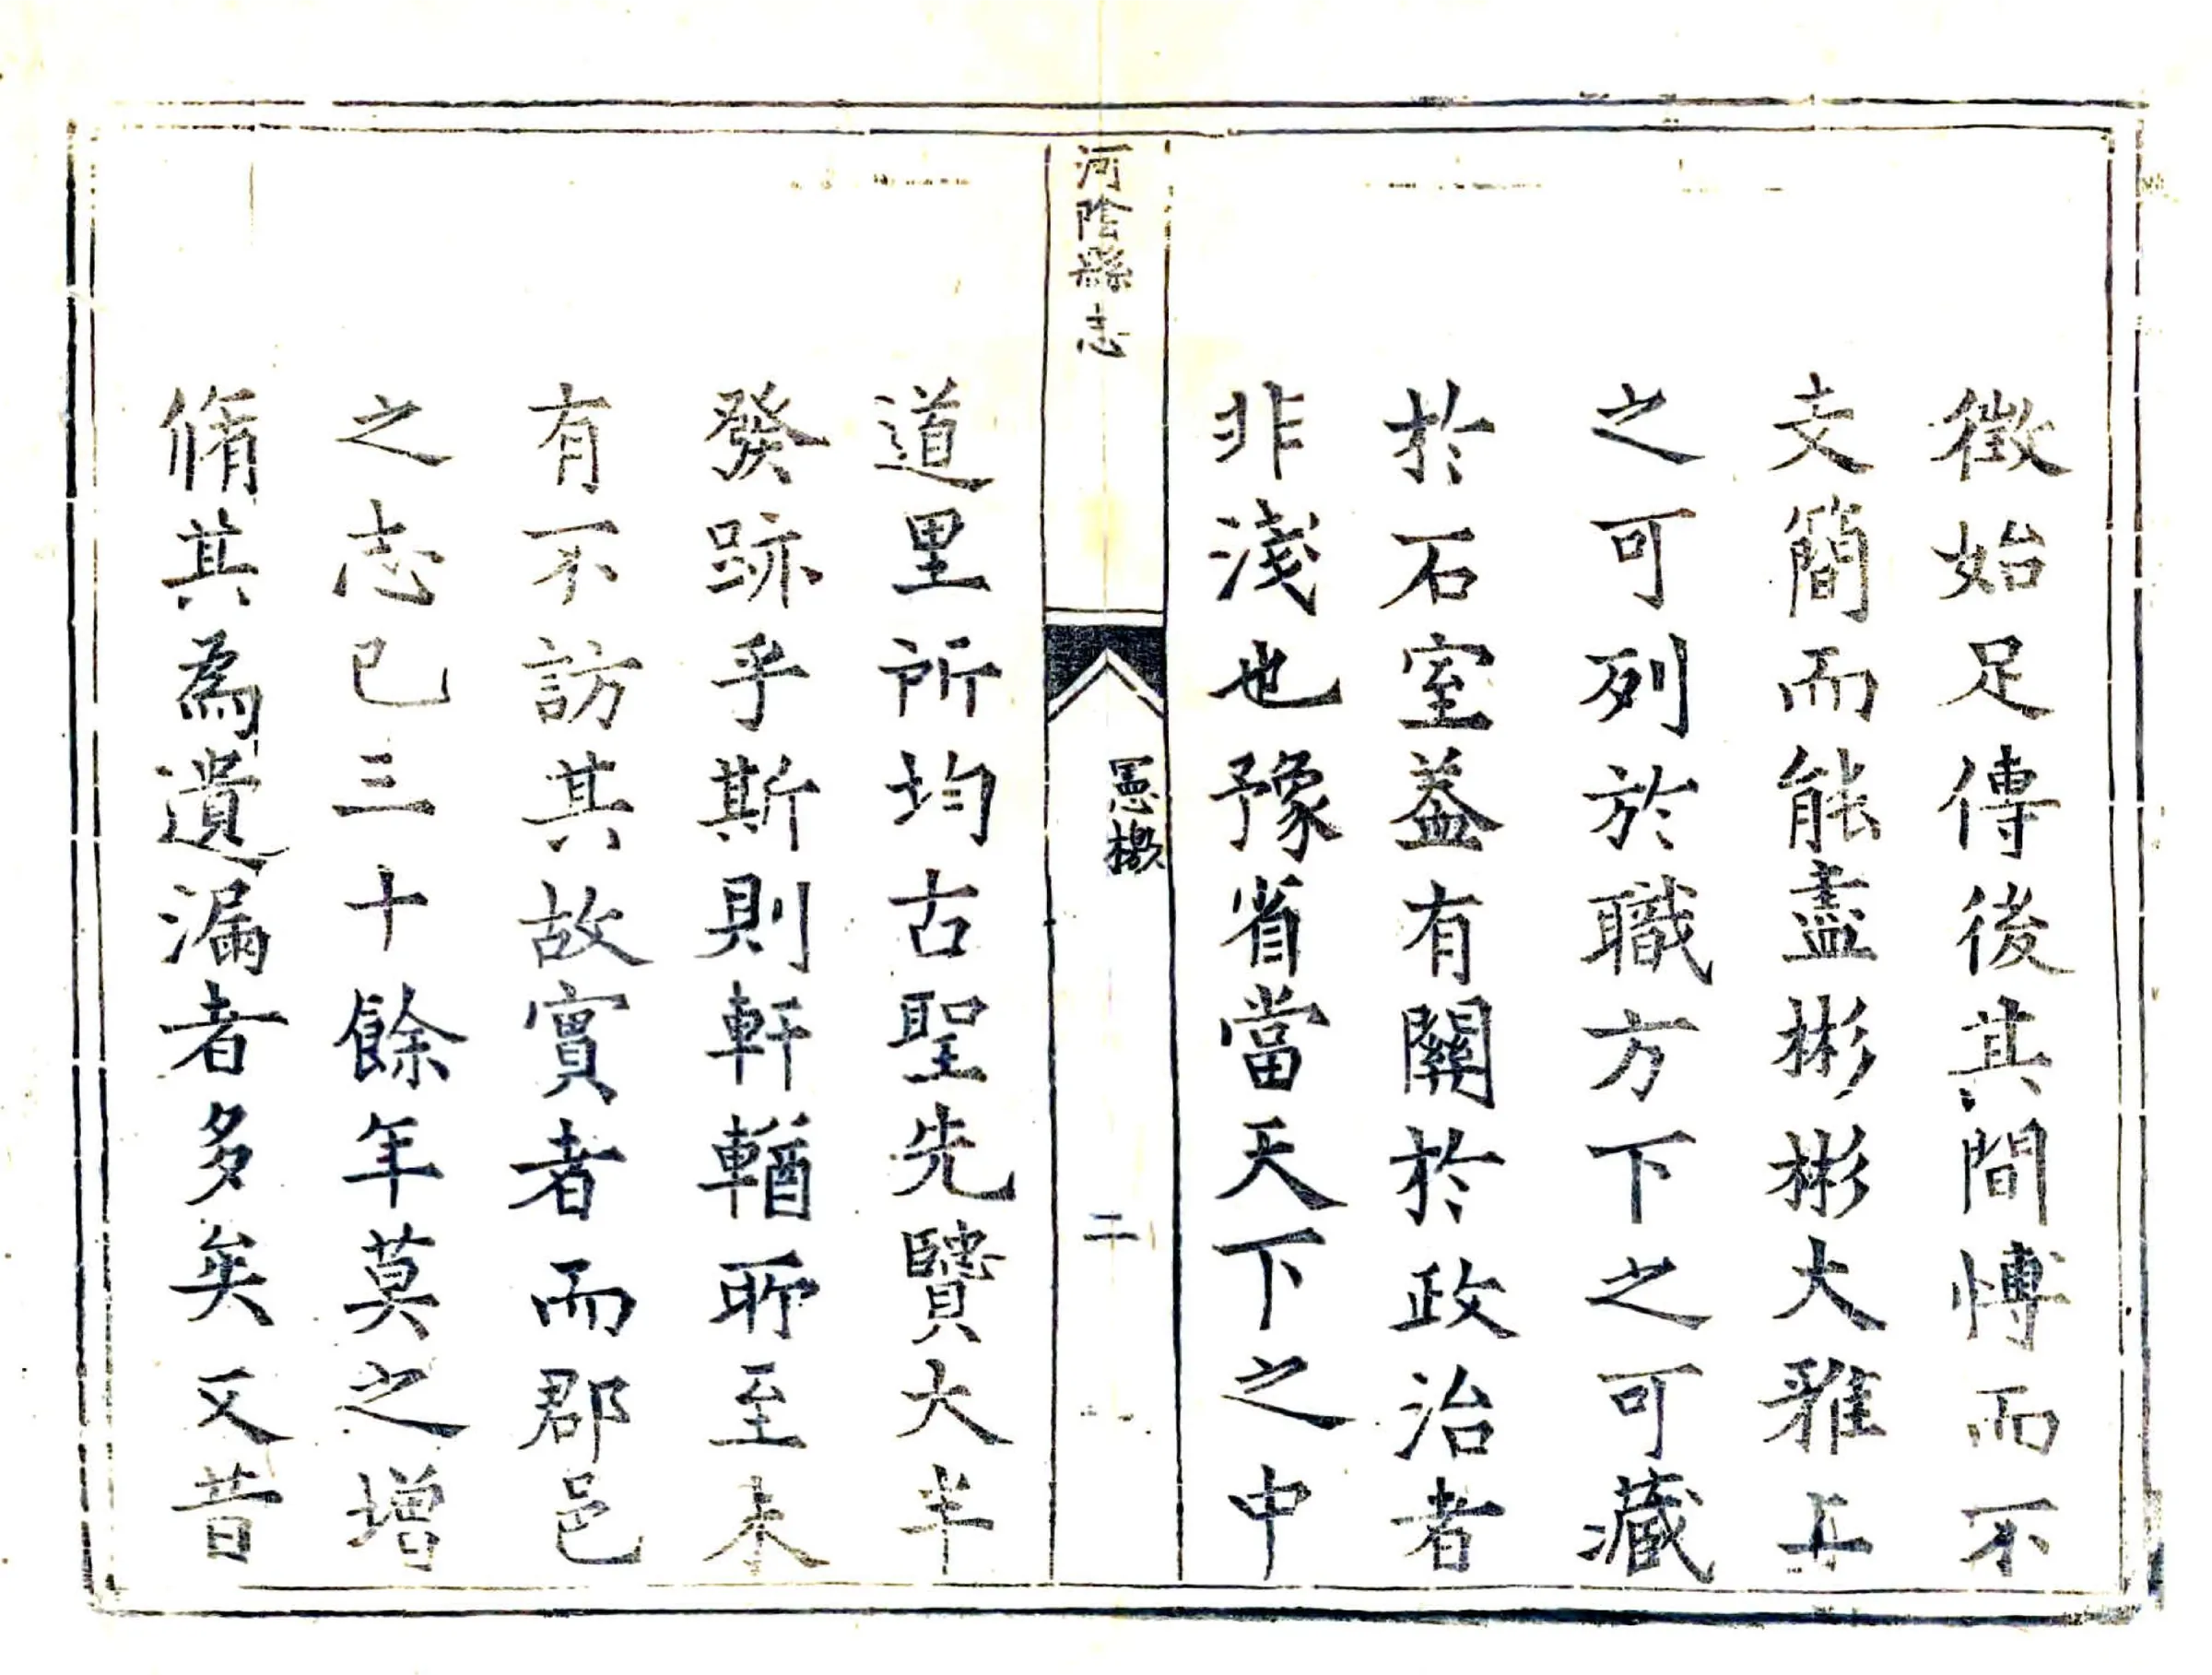 徵始足傳後其間博而不
文簡而能盡彬彬大雅上
之可列於職方下之可藏
於石室葢有關於政治者
非淺也豫省當天下之中
河陰縣志
憲檄
二
道里所均古聖先賢大半
發跡乎斯則軒輶所至未
有不訪其故實者而郡邑
之志已三十餘年莫之增
脩其為遺漏者多矣又昔